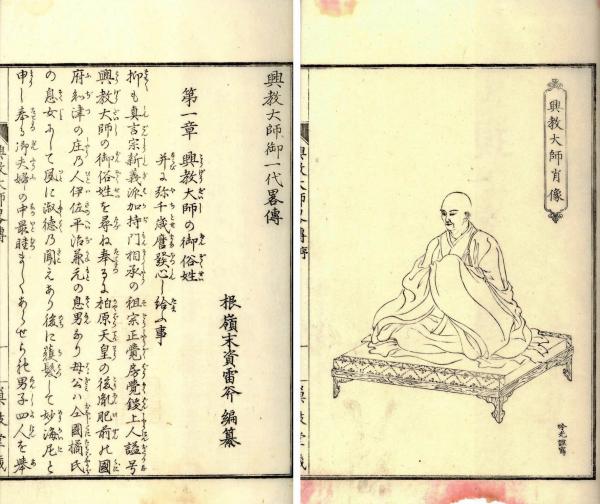 興教大師肖像
吟光謹寫
興教大師御一代畧傳
第一章 興教大師の御俗姓
并に弥千歳麿發心し給ふ事
根嶺末資雷斧 編纂
抑も真言宗新義派加持門相承の祖宗正覺房覺鑁上人諡号
興教大師の御俗姓を尋ね奉るに柏原天皇の後胤肥前の國
府知津の庄乃人伊佐平治兼元の息男なり母公ハ仝國橘氏
の息女にして夙に淑徳乃聞えあり後に薙髪して妙海尼と
申し奉る御夫婦の中最睦ましくあらせられ男子四人を擧